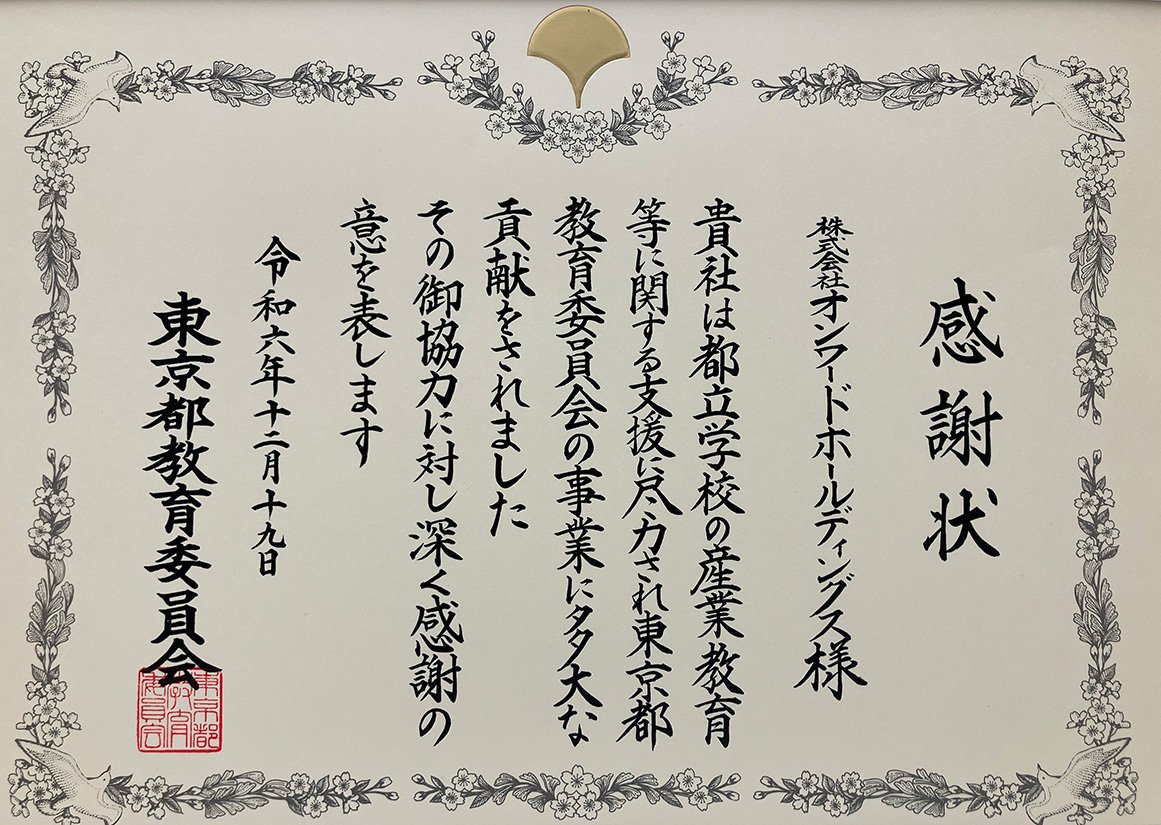 感謝状
株式会社オンワードホールディングス様
貴社は都立学校の産業教育
等に関する支援に尽力され東京都
教育委員会の事業に多大な
貢献をされました
その御協力に対し深く感謝の
意を表します
令和六年十二月十九日
東京都教育委員会
東京都
教育
委員会